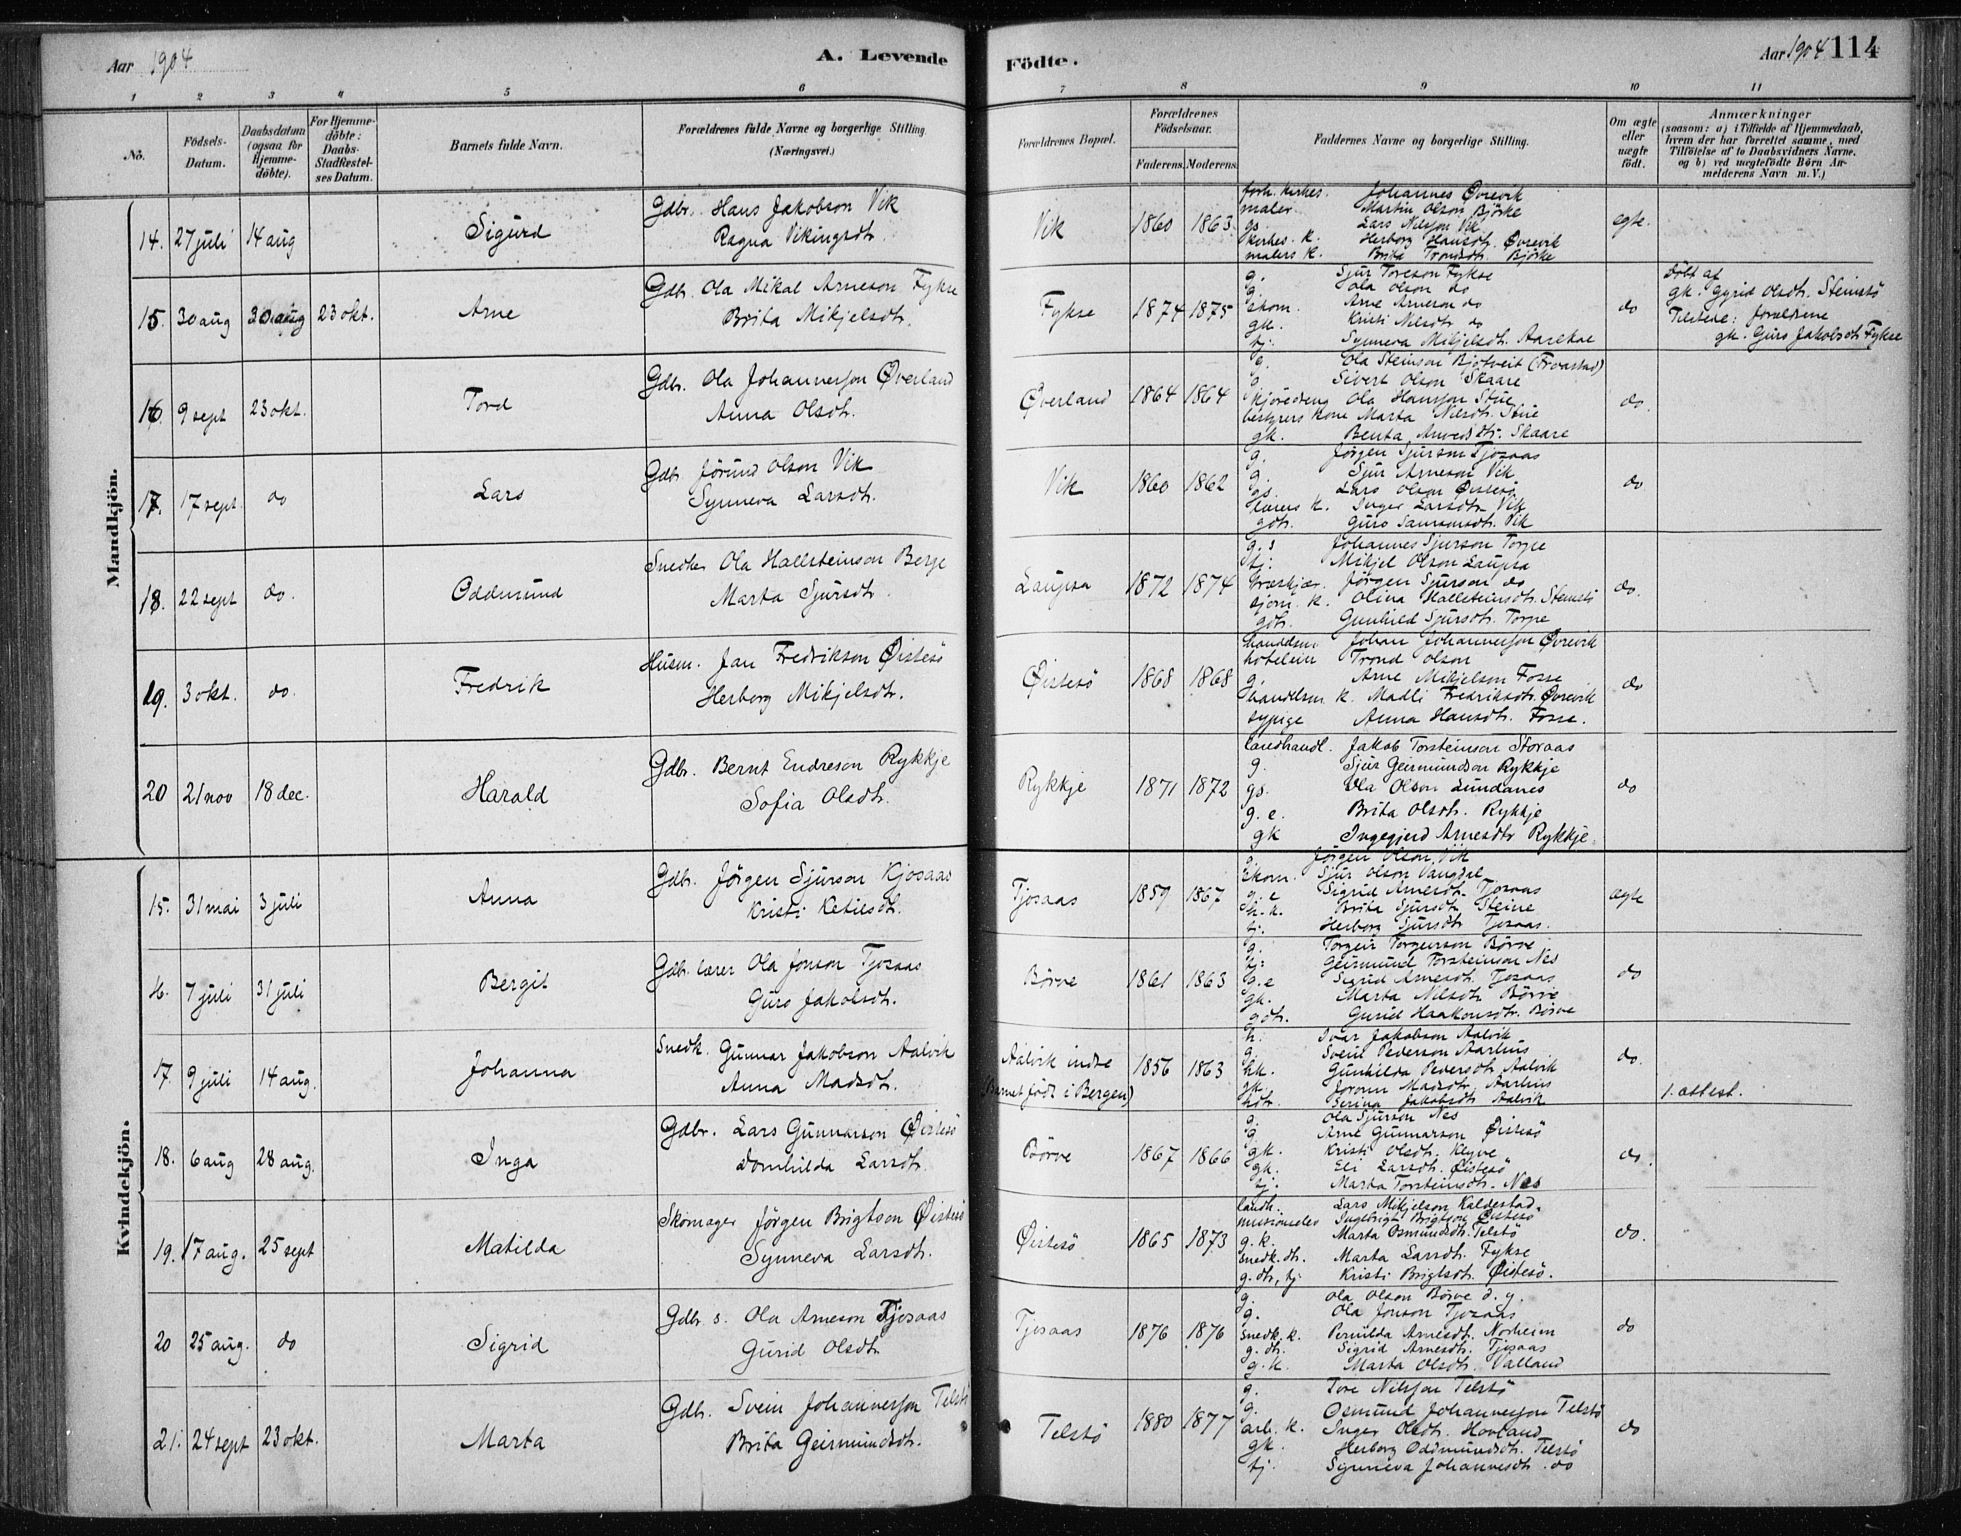 Aar 1904
A. Levende
Födte.
Aar 1904 114
1 2 3 4 5 6 7 8 9 10 11
No.
Födsels-
Datum.
Daabsdatum
(ogsaa for
Hjemme-
döbte).
For Hjemme-
döbte:
Daabs-
Stadfæstel-
ses Datum.
Barnets fulde Navn.
Forældrenes fulde Navne og borgerlige Stilling
(Næringsvei.)
Forældrenes Bopæl.
Forældrenes
Födselsaar.
Faderens. Moderens.
Faddernes Navne og borgerlige Stilling.
Om ægte
eller
uægte
födt.
Anmærkninger
(saasom: a) i Tilfælde af Hjemmedaab,
hvem der har forrettet samme, med
Tilföielse af to Daabsvidners Navne,
og b) ved uægtefödte Börn An-
melderens Navn m. V.)
Mandkjön.
14. 27 juli 14 aug Sigurd
Gdbr. Hans Jakobson Vik
Ragna Vikingsdtr.
Vik 1860 1863
forh. kirkes. Johannes Øvrevik
maler Martin Olson Björke
gs. Lars Nilsson Vik
kirkes. k. Herborg Hansdtr. Øvrevik
malers k. Brita Trondsdtr. Björke
egte.
15. 30 aug 30 aug 23 okt. Arne
Gdbr. Ola Mikal Arneson Fykse
Brita Mikjelsdtr.
Fykse 1874 1875
g. Sjur Toreson Fykse
g. Ola Olson do
skom. Arne Arneson do
gk. Kristi Nilsdtr. do
tj. Synneva Mikjelsdtr. Aarekae
do
Döbt af
gk. Gyrid Olsdtr. Steinstö
Tilstede: forældrene
gk. Guro Jakobsdtr Fykse
16. 9 sept 23 okt. Tord
Gdbr. Ola Johannesson Øverland
Anna Olsdtr.
Øverland 1864 1864
g. Ola Steinson Bjotveit (Froastad)
g Sivert Olson Skaare
skjöreding Ola Hansson Stue
bestyrers kone Marta Nilsdtr. Stue
gk. Benta Anvedsdtr. Skaare
do.
17. 17 sept. do Lars
Gdbr Jörund Olson Vik
Synneva Larsdtr.
Vik 1860 1862
g. Jörgen Sjurson Tjosaas
g. Sjur Arneson Vik
gs. Lars Olson Öistesö
lærers k. Inger Larsdtr Vik
gdtr. Guro Samsonsdtr. Vik
do
18. 22 sept do. Oddmund
Snedker Ola Hallsteinson Berge
Marta Sjursdtr.
Laupsa 1872 1874
g.s Johannes Sjurson Torpe
tj. Mikjel Olson Laupsa
Jörgen Sjurson do
sjöm. k. Olina Hallsteinsdtr. Steinstö
gdtr. Gunhild Sjursdtr. Torpe
do.
19. 3 okt. do. Fredrik
Husm. Jan Fredrikson Øistesö
Herborg Mikjelsdtr.
Øistesö 1868 1868
handelsm Johan Johannesson Øvrevik
hoteleier Trond Olson
g. Arne Mikjelson Fosse
handelsm. k. Madli Fredriksdtr. Øvrevik
sypige Anna Hansdtr. Fosse.
do
20 21 nov 18 dec. Harald
Gdbr. Bernt Endreson Rykkje
Sofia Olsdtr.
Rykkje 1871 1872
landhandl. Jakob Torsteinson Storaas
g. Sjur Geirmundson Rykkje
gs. Ola Olson Lundanes
g. e. Brita Olsdtr. Rykkje
gk Ingegjerd Arnesdtr Rykkje.
do
Kvindekjön.
15. 31 mai 3 juli Anna
Gdbr. Jörgen Sjurson Kjosaas
Kristi Ketilsdtr.
Tjosaas 1859 1867
g. Jörgen Olson Vik
Skom. Sjur Olson Vangdal
g.e Sigrid Arnesdtr. Tjosaas
h.k. Brita Sjursdtr Steine
tj. Herborg Sjursdtr Tjosaas.
ægte
16. 7 juli 31 juli Bergit
Gdbr. lærer Ola Jonson Tjosaas
Guro Jakobsdtr.
Börve 1861 1863
g. Torgeir Torgeirson Börve
tj. Geirmund Torsteinson Nes
g.e Sigrid Arnesdtr. Tjosaas
gk. Marta Nilsdtr Börve
gdtr. Gurid Haakonsdtr. Börve
do
17. 9 juli 14 aug. Johanna
Snedk. Gunnar Jakobson Aalvik
Anna Madsdtr.
Aalvik indre
(Barnet födt i Bergen)
1856 1863
h. Ivar Jakobson Aalvik
g. Svein Pederson Aarhus
hk. Gunhilda Pedersdtr. Aalvik
gk. Jorunn Madsdtr. Aarhus
hdtr. Serina Jakobsdtr Aalvik
do.
1. attest.
18. 6 aug 28 aug. Inga
Gdbr. Lars Gunnarson Øistesö
Domhilda Larsdtr.
Börve 1867 1866
g. Ola Sjurson Nes
g Arne Gunnarson Øistesö
gk. Kristi Olsdtr. Kleyve
gk. Eli Larsdtr. Øistesö
tj. Marta Torsteinsdtr. Nes
do.
19. 17 aug. 25 sept Matilda
Skomager Jörgen Brigtson Øistesö
Synneva Larsdtr.
Øistesö 1865 1873
landh. Lars Mikjelson Kaldestad.
Ingebrigt Brigtson Øistesö
g.k. Marta Osmundsdtr. Telstö
snedk. dtr. Marta Larsdtr. Fykse
g.dtr, tj Kristi Brigtsdtr. Øistesö.
do.
20 25 aug. do Sigrid
Gdbr s. Ola Arneson Tjosaas
Gurid Olsdtr
Tjosaas 1876 1876
g. Ola Olson Börve d.y.
g. Ola Jonson Tjosaas
snedk. k. Pernilda Arnesdtr. Norheim
g. dtr. Sigrid Arnesdtr. Tjosaas
g.k. Marta Olsdtr. Valland
do
21. 24 sept 23 okt. Marta
Gdbr. Svein Johannesson Telstö
Brita Geirmundsdtr.
Telstö 1880 1877
g. Tore Nilsson Telstö
g. Osmund Johannesson Telstö
arb. k. Inger Olsdtr. Hovland
gk. Herborg Oddmundsdtr. Telstö
tj. Synneva Johannesdtr. do
do